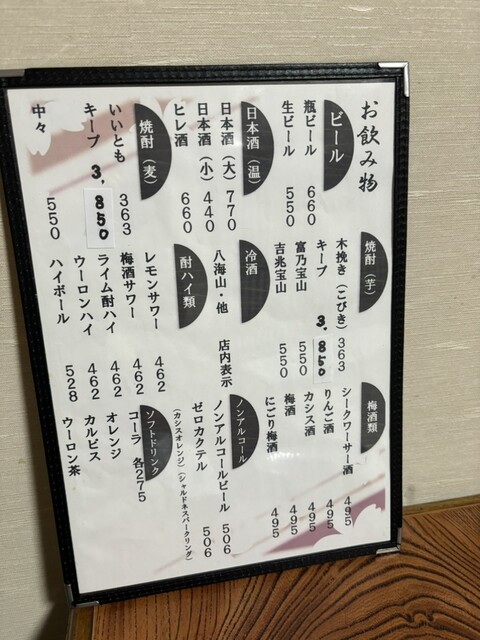 お飲み物
ビール
瓶ビール 660
生ビール 550
日本酒（温）
日本酒（大） 770
日本酒（小） 440
ヒレ酒 660
焼酎（麦）
いいとも 363
キープ 3,850
中々 550
焼酎（芋）
木挽き（こびき） 363
キープ 3,850
富乃宝山 550
吉兆宝山 550
冷酒
八海山・他 店内表示
酎ハイ類
レモンサワー 462
梅酒サワー 462
ライム酎ハイ 462
ウーロンハイ 462
ハイボール 528
梅酒類
シークワーサー酒 495
りんご酒 495
カシス酒 495
梅酒 495
にごり梅酒 495
ノンアルコール
ノンアルコールビール 506
ゼロカクテル 506
（カシスオレンジ）（シャルドネスパークリング）
ソフトドリンク
コーラ 各275
オレンジ
カルピス
ウーロン茶